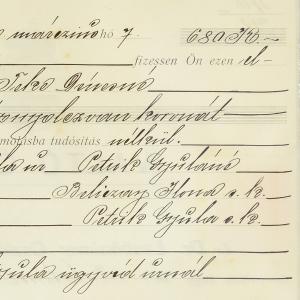 márczius hó 7. 680 K.–
fizessen Ön ezen el-
Teke Dénesné
nyolczvan koronát
számolásba tudósítás nélkül.
la ur Petrik Gyuláné
Beliczay Ilona s. k.
Petrik Gyula s. k.
Gyula ügyvéd urnál